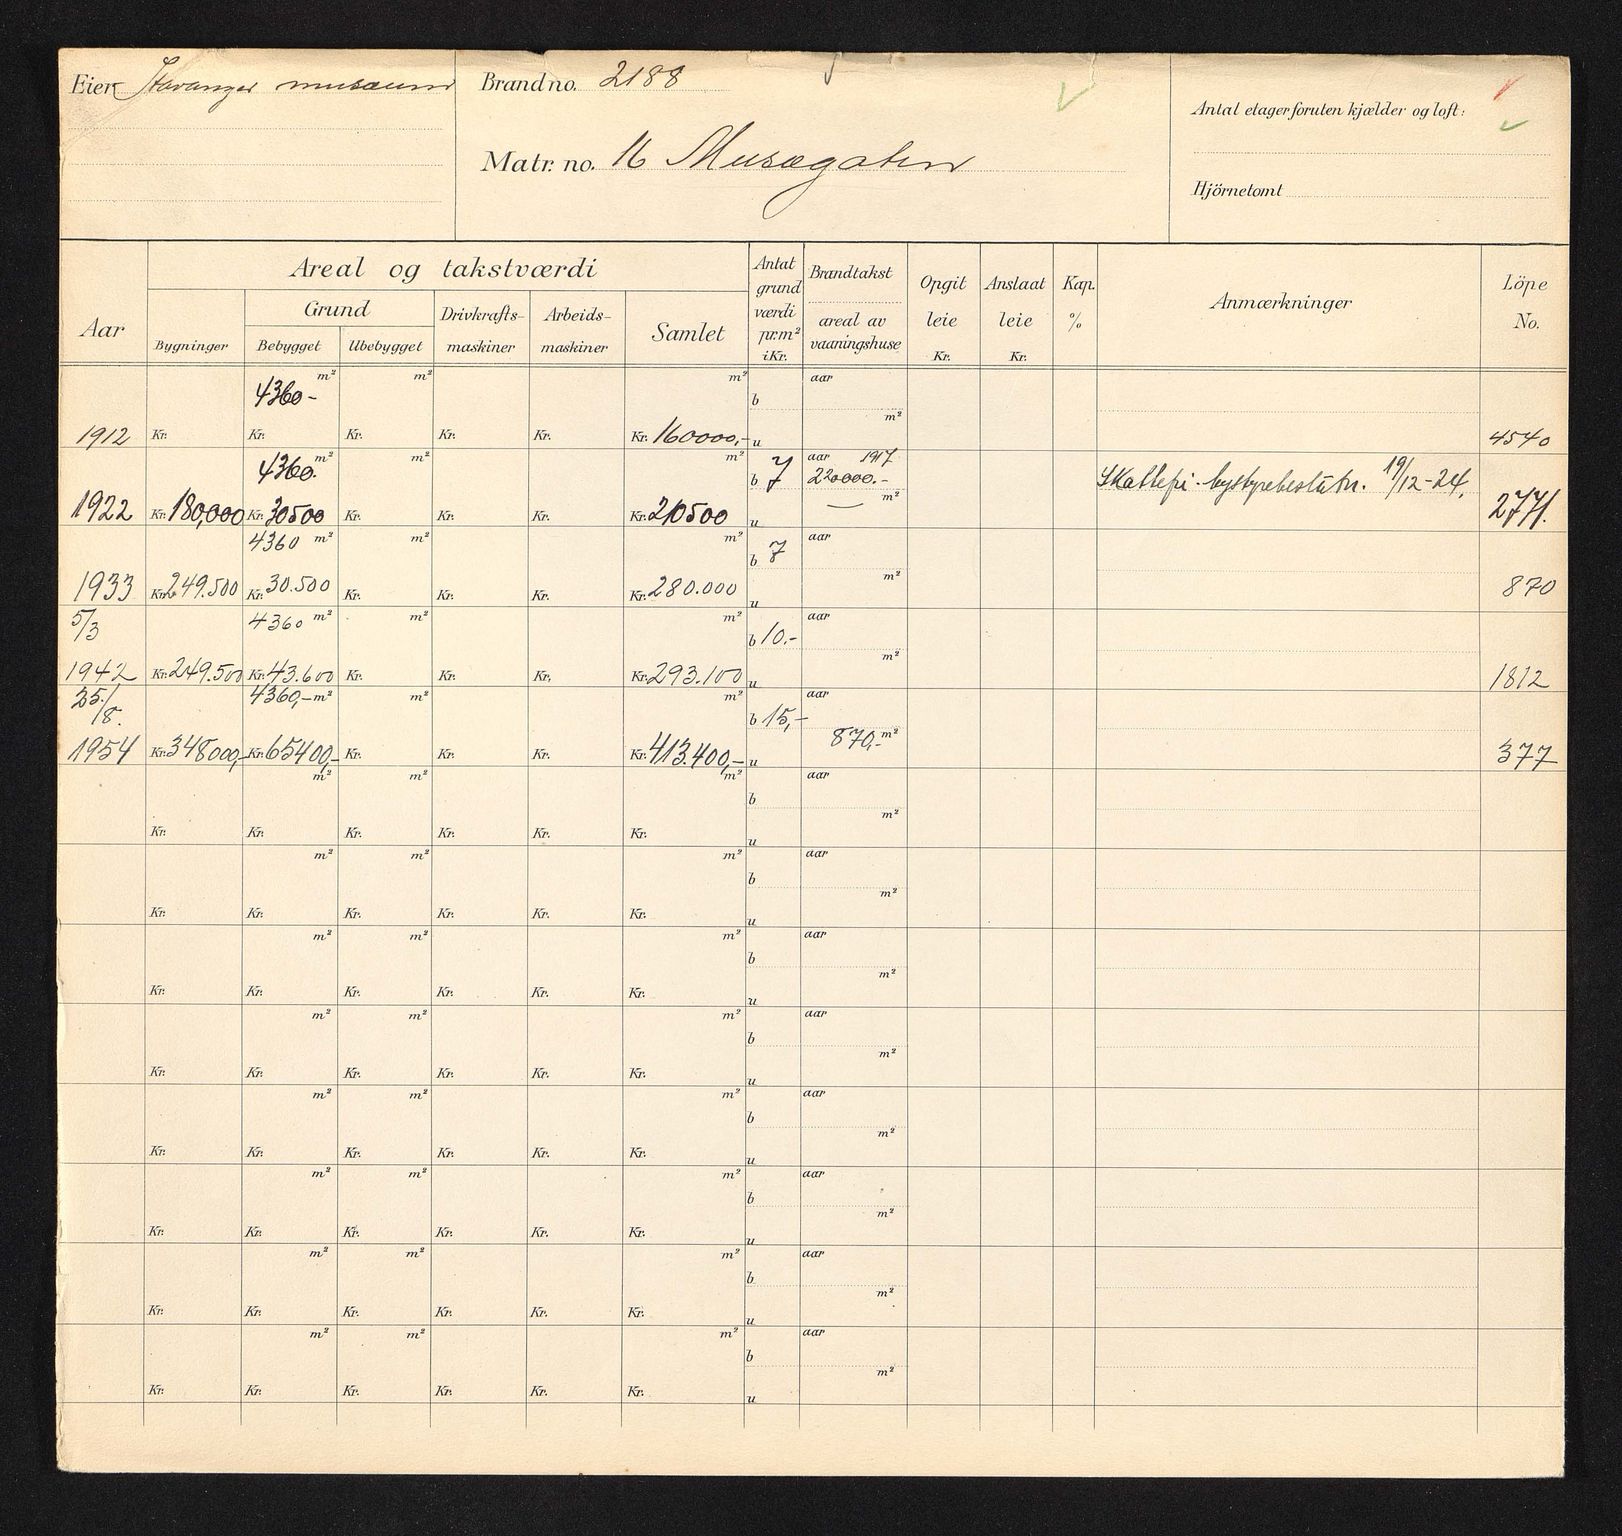 Eier Stavanger museum
Brandno. 2188
Matr. no. 16 Musegaten
Antal etager foruten kjælder og loft:
Hjörnetomt
Aar
Areal og takstværdi
Grund
Bygninger
Bebygget
Ubebygget
Drivkrafts-
maskiner
Arbeids-
maskiner
Samlet
Antat
grund
værdi
pr.m²
i Kr.
Brandtakst
areal av
vaaningshuse
Opgit
leie
Kr.
Anslaat
leie
Kr.
Kap.
%
Anmærkninger
Löpe
No.
4360- m² m² m² aar
b m²
1912 Kr. Kr. Kr. Kr. Kr. Kr. 160000,- u 4540
4360. m² m² m² aar 1917
b 7 220000.- Skattefri bystyrebeslutn. 19/12-24.
m²
1922 Kr. 180,000 Kr. 30500 Kr. Kr. Kr. Kr. 210500 u 2771.
4360 m² m² m² aar
b 7 m²
1933 Kr. 249.500 Kr. 30.500 Kr. Kr. Kr. Kr. 280.000 u 870
5/3 4360 m² m² m² aar
b 10.- m²
1942 Kr. 249.500 Kr. 43.600 Kr. Kr. Kr. Kr. 293.100 u 1812
25/8. 4360,- m² m² m² aar
b 15,- 870,- m²
1954 Kr. 348000,- Kr. 65400,- Kr. Kr. Kr. Kr. 413.400,- u 377
m² m² m² aar
b m²
Kr. Kr. Kr. Kr. Kr. Kr. u
m² m² m² aar
b m²
Kr. Kr. Kr. Kr. Kr. Kr. u
m² m² m² aar
b m²
Kr. Kr. Kr. Kr. Kr. Kr. u
m² m² m² aar
b m²
Kr. Kr. Kr. Kr. Kr. Kr. u
m² m² m² aar
b m²
Kr. Kr. Kr. Kr. Kr. Kr. u
m² m² m² aar
b m²
Kr. Kr. Kr. Kr. Kr. Kr. u
m² m² m² aar
b m²
Kr. Kr. Kr. Kr. Kr. Kr. u
m² m² m² aar
b m²
Kr. Kr. Kr. Kr. Kr. Kr. u